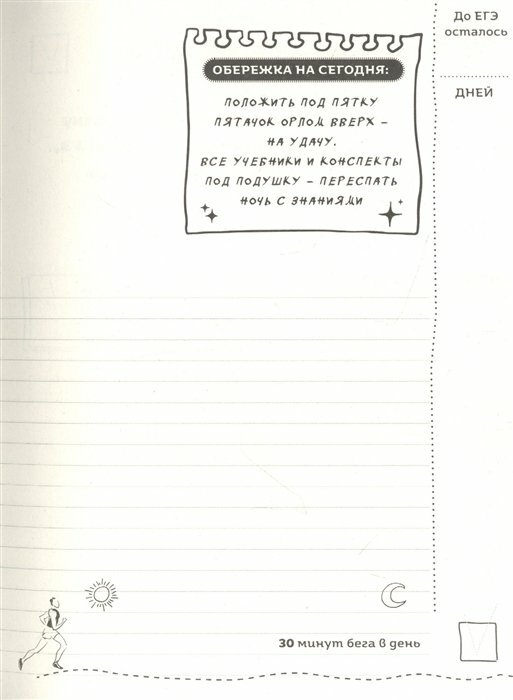 До ЕГЭ
осталось
ДНЕЙ
ОБЕРЕЖКА НА СЕГОДНЯ:
ПОЛОЖИТЬ ПОД ПЯТКУ
ПЯТАЧОК ОРЛОМ ВВЕРХ –
НА УДАЧУ.
ВСЕ УЧЕБНИКИ И КОНСПЕКТЫ
ПОД ПОДУШКУ – ПЕРЕСПАТЬ
НОЧЬ С ЗНАНИЯМИ
30 минут бега в день